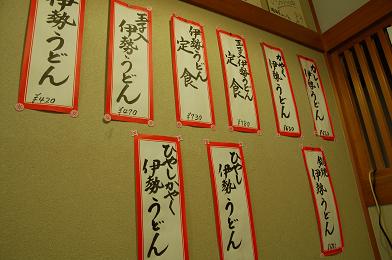 伊勢うどん
¥420
玉子入
伊勢うどん
¥470
伊勢うどん
定食
¥730
玉子入
伊勢うどん
定食
¥780
かやく
伊勢うどん
伊勢うどん
ひやしかやく
伊勢うどん
ひやし
伊勢うどん
伊勢うどん